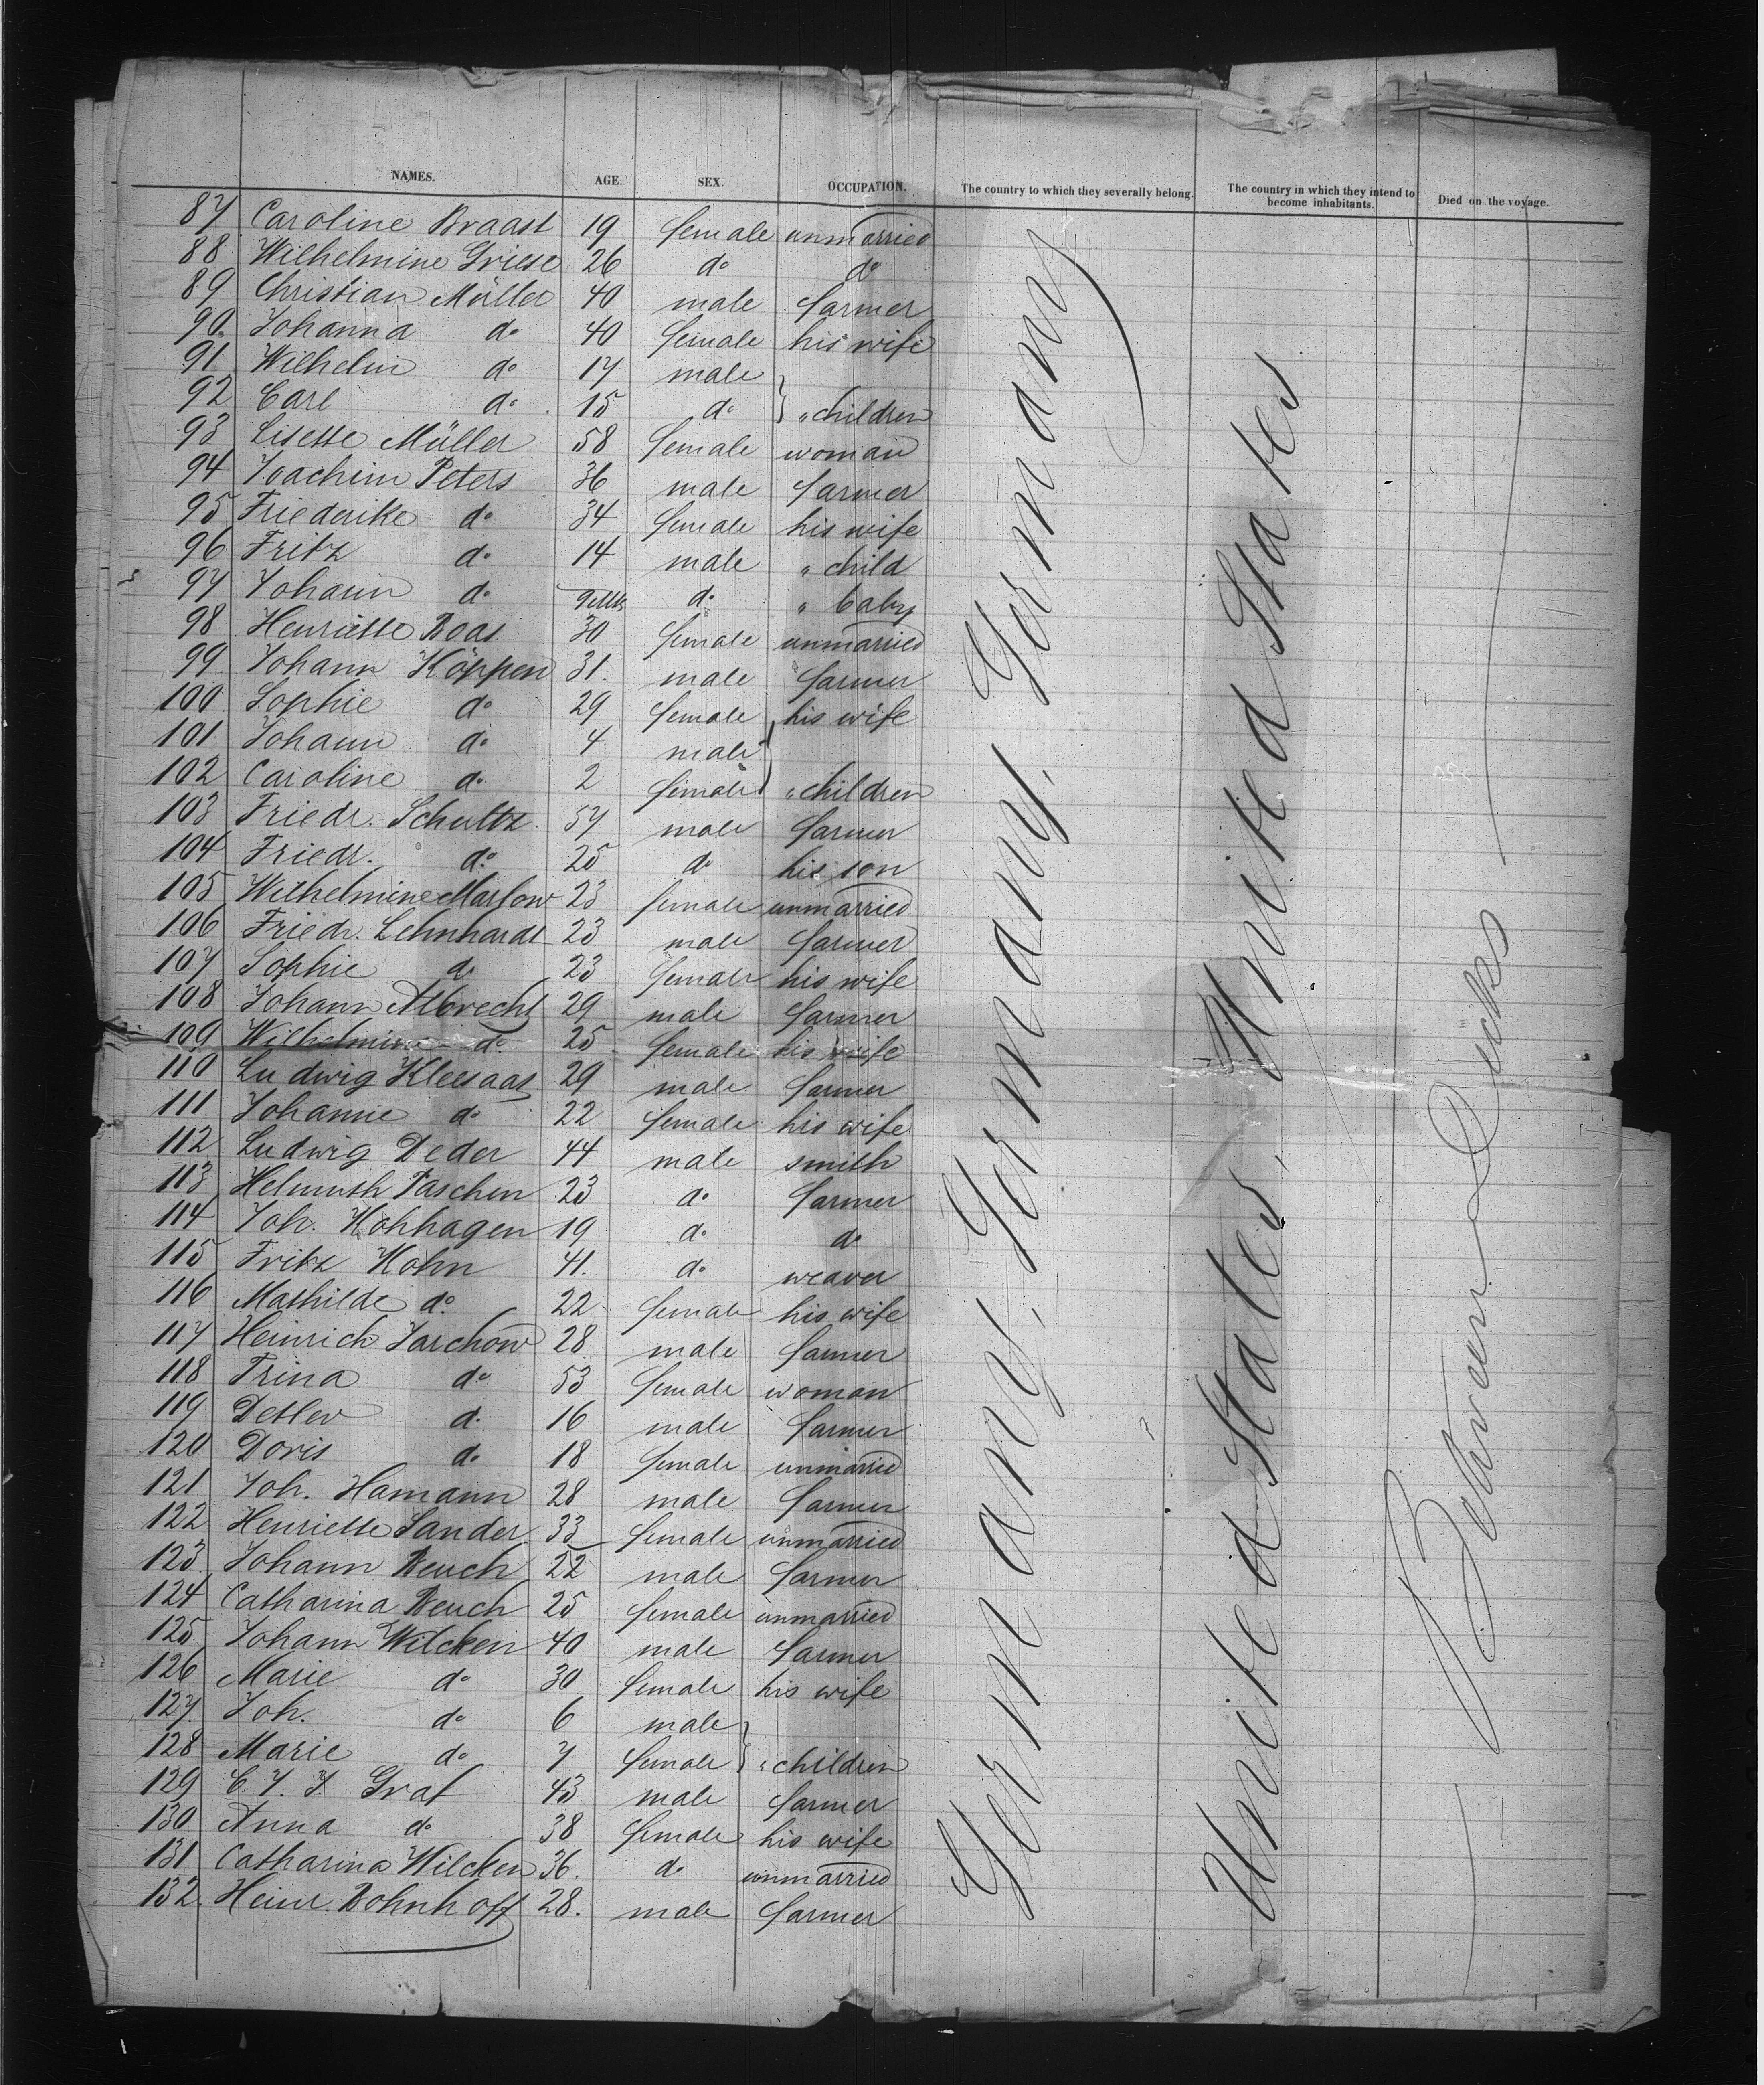 NAMES. AGE. SEX. OCCUPATION. The country to which they severally belong. The country in which they intend to become inhabitants. Died on the voyage.
87 Caroline Braast 19 female unmarried
88 Wilhelmine Griese 26 do do
89 Christian Müller 40 male farmer
90 Johanna do 40 female his wife
91 Wilhelm do 17 male
92 Carl do 15 do " children
93 Lisette Müller 58 female woman
94 Joachim Peters 36 male farmer
95 Friederike do 34 female his wife
96 Fritz do 14 male " child
97 Johann do do " baby
98 Henriette Roas 30 female unmarried
99 Johann Köppen 31. male farmer
100 Sophie do 29 female his wife
101 Johann do 4 male
102 Caroline do 2 female " children
103 Friedr. Schultz 57 male farmer
104 Friedr. do 25 do his son
105 Wilhelmine Marlow 23 female unmarried
106 Friedr. Lehnhardt 23 male farmer
107 Sophie do 23 female his wife
108 Johann Albrecht 29 male farmer
109 Wilhelmine do 25 female his wife
110 Ludwig Kleesaas 29 male farmer
111 Johanne do 22 female his wife
112 Ludwig Deder 44 male smith
113 Helmuth Paschen 23 do farmer
114 Joh. Hohhagen 19 do do
115 Fritz Kohn 41. do weaver
116 Mathilde do 22 female his wife
117 Heinrich Jarchow 28 male farmer
118 Trina do 53 female woman
119 Detlev do 16 male farmer
120 Doris do 18 female unmarried
121 Joh. Hamann 28 male farmer
122 Henriette Sander 33 female unmarried
123 Johann Reuch 22 male farmer
124 Catharina Reuch 25 female unmarried
125 Johann Wilcken 40 male farmer
126 Marie do 30 female his wife
127 Joh. do 6 male
128 Marie do 7 female " children
129 C. J. J. Graf 43 male farmer
130 Anna do 38 female his wife
131 Catharina Wilcken 36. do unmarried
132. Heinr. Bohnhoff 28. male farmer
Germany. Germany. Germany
United States. United States
Between Decks